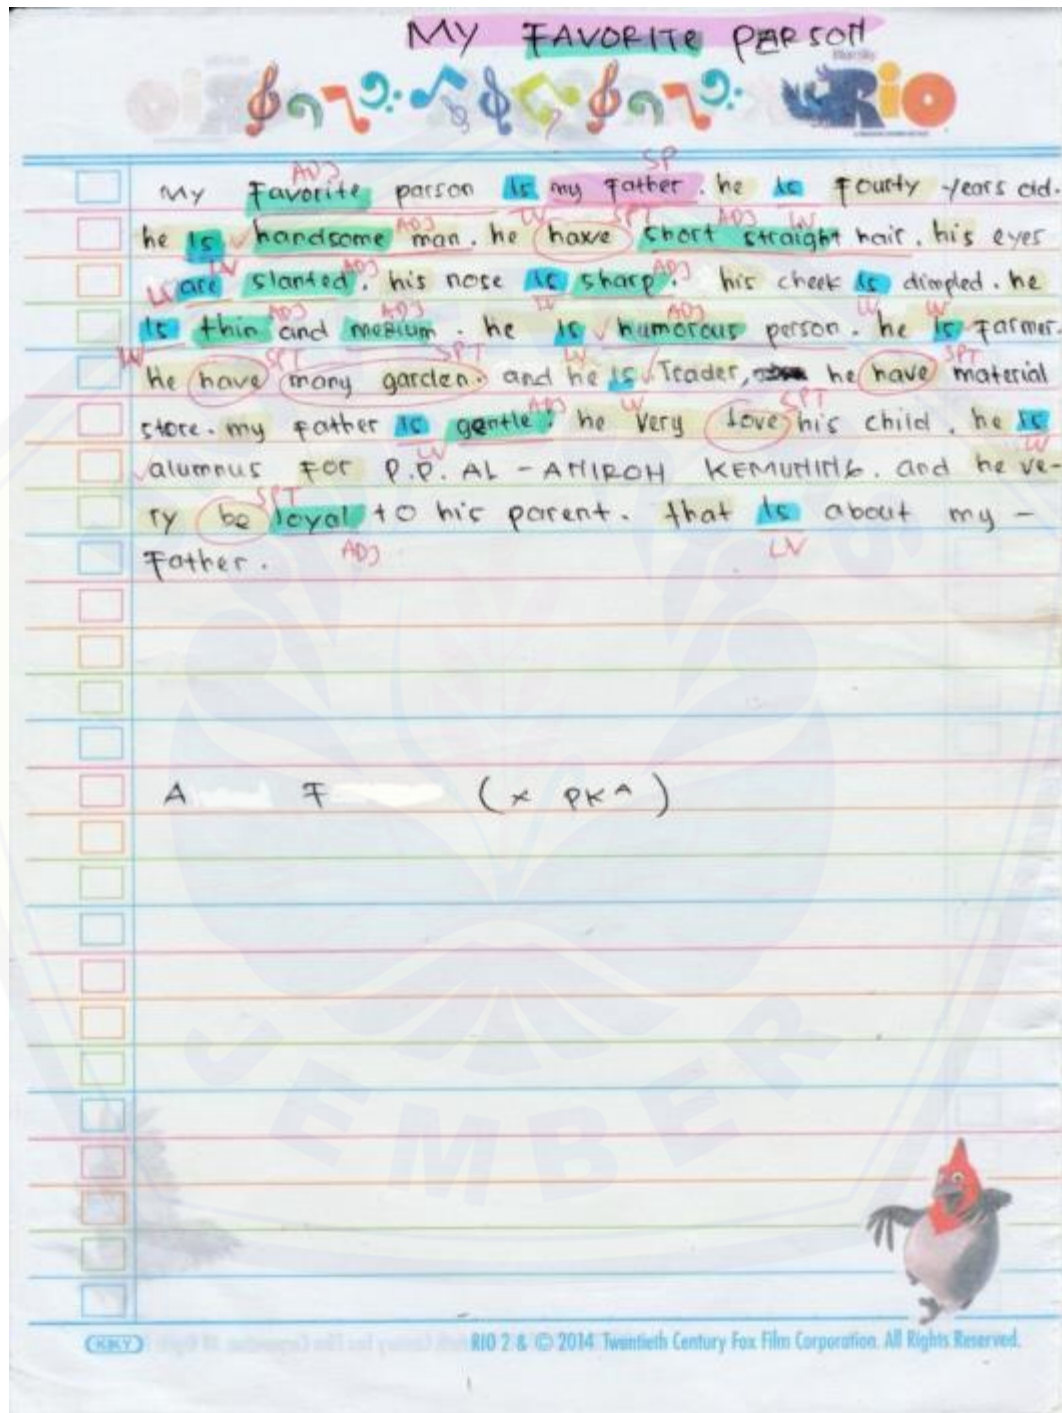 MY FAVORITE PERSON
RIO
ADJ SP
My Favorite parson is my Father. he is Fourty years old.
LV SPT ADJ LV
he is handsome man. he have short straight hair. his eyes
ADJ
LV ADJ ADJ
are slanted. his nose is sharp. his cheek is dimpled. he
LV
ADJ ADJ LV ADJ LV LV
is thin and medium. he is humorous person. he is Farmer.
LV SPT SPT LV SPT
He have many garden. and he is Trader, he have material
ADJ LV SPT
store. my Father is gentle. he very love his child. he is
LV LV
alumnus For P.P. AL - AMIROH KEMUNING. and he ve-
SPT
ry be loyal to his parent. that is about my -
ADJ LV
Father.
A F (X PKA)
JEMBER
KKY
RIO 2 & © 2014 Twentieth Century Fox Film Corporation. All Rights Reserved.